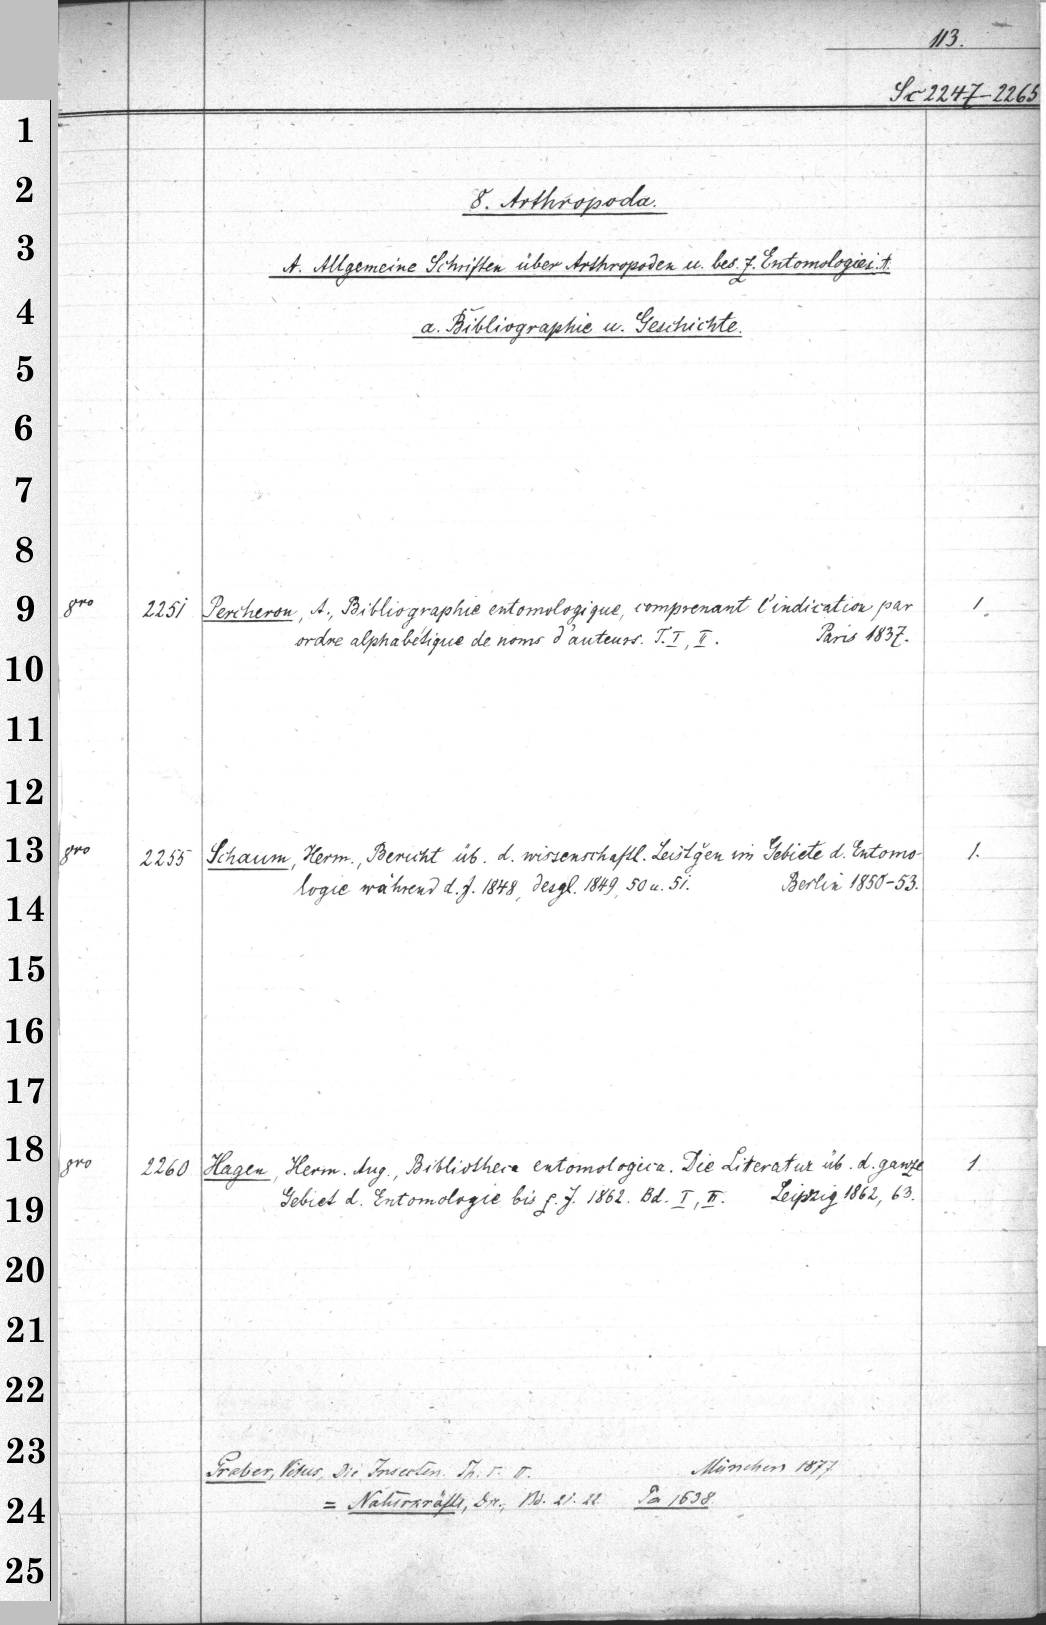 113.
Sc 2247-2265
1
2
8. Arthropoda.
3
A. Allgemeine Schriften über Arthropoden u. bes. z. Entomologie i. A.
4
a. Bibliographie u. Geschichte.
5
6
7
8
9
8vo 2251 Percheron, A., Bibliographie entomologique, comprenant l'indication par 1.
ordre alphabétique de noms d'auteurs. T. I, II. Paris 1837.
10
11
12
13
8vo 2255 Schaum, Herm., Bericht üb. d. wissenschaftl. Leistgen im Gebiete d. Entomo- 1.
logie während d. J. 1848, desgl. 1849, 50 u. 51. Berlin 1850-53.
14
15
16
17
18
8vo 2260 Hagen, Herm. Aug., Bibliotheca entomologica. Die Literatur üb. d. ganze 1
Gebiet d. Entomologie bis z. J. 1862. Bd. I, II. Leipzig 1862, 63.
19
20
21
22
23
Graber, Vitus, Die Insecten. Th. I. II. München 1877
= Naturkräfte, Die, Bd. 21. 22 1638.
24
25